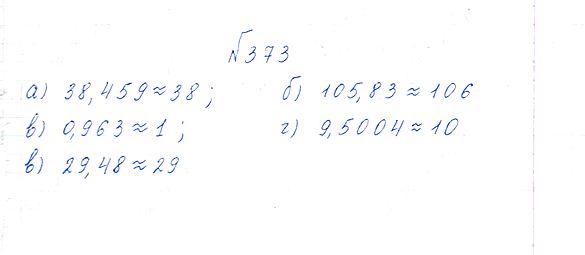 №373
а) 38,459≈38; б) 105,83≈106
в) 0,963≈1; г) 9,5004≈10
в) 29,48≈29